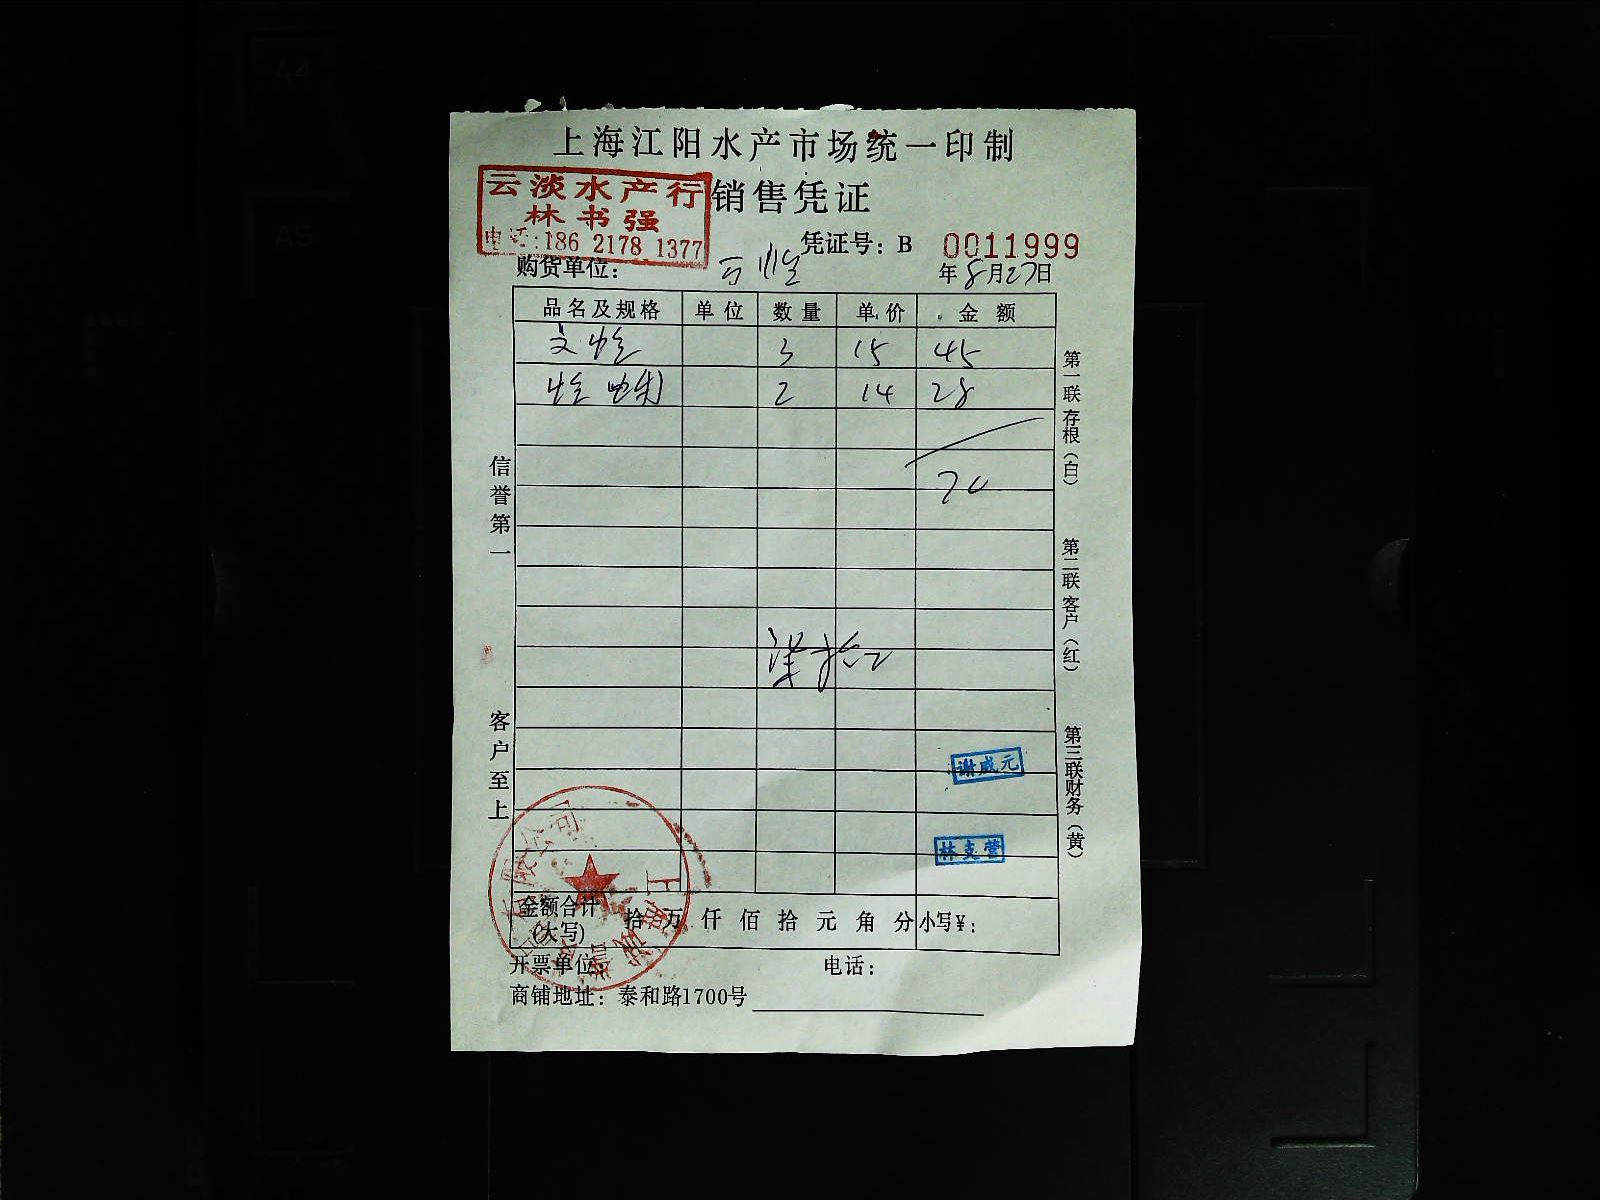 上海江阳水产市场统一印制
云淡水产行
林书强
电话:186 2178 1377
销售凭证
凭证号: B 0011999
购货单位:
年8月27日
品名及规格 单位 数量 单价 金额
3 15 45
2 14 28
70
柒拾
信誉第一
客户至上
第一联 存根(白)
第二联 客户(红)
第三联 财务(黄)
谢威元
林克营
金额合计(大写) 拾 万 仟 佰 拾 元 角 分 小写¥:
开票单位: 电话:
商铺地址: 泰和路1700号